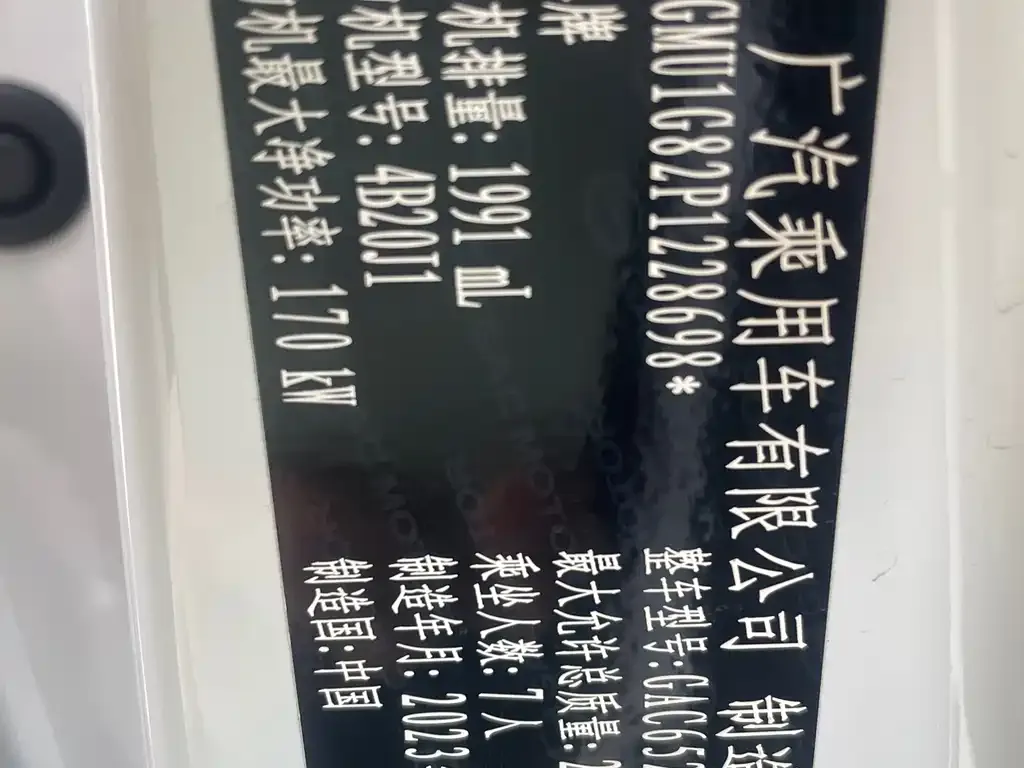 广汽乘用车有限公司 制造
GMU1G82P122898*
整车型号:GAC652
牌
最大允许总质量:2
机排量: 1991 mL
乘坐人数: 7人
机型号: 4B20J1
制造年月: 2023
机最大净功率: 170 kW
制造国:中国